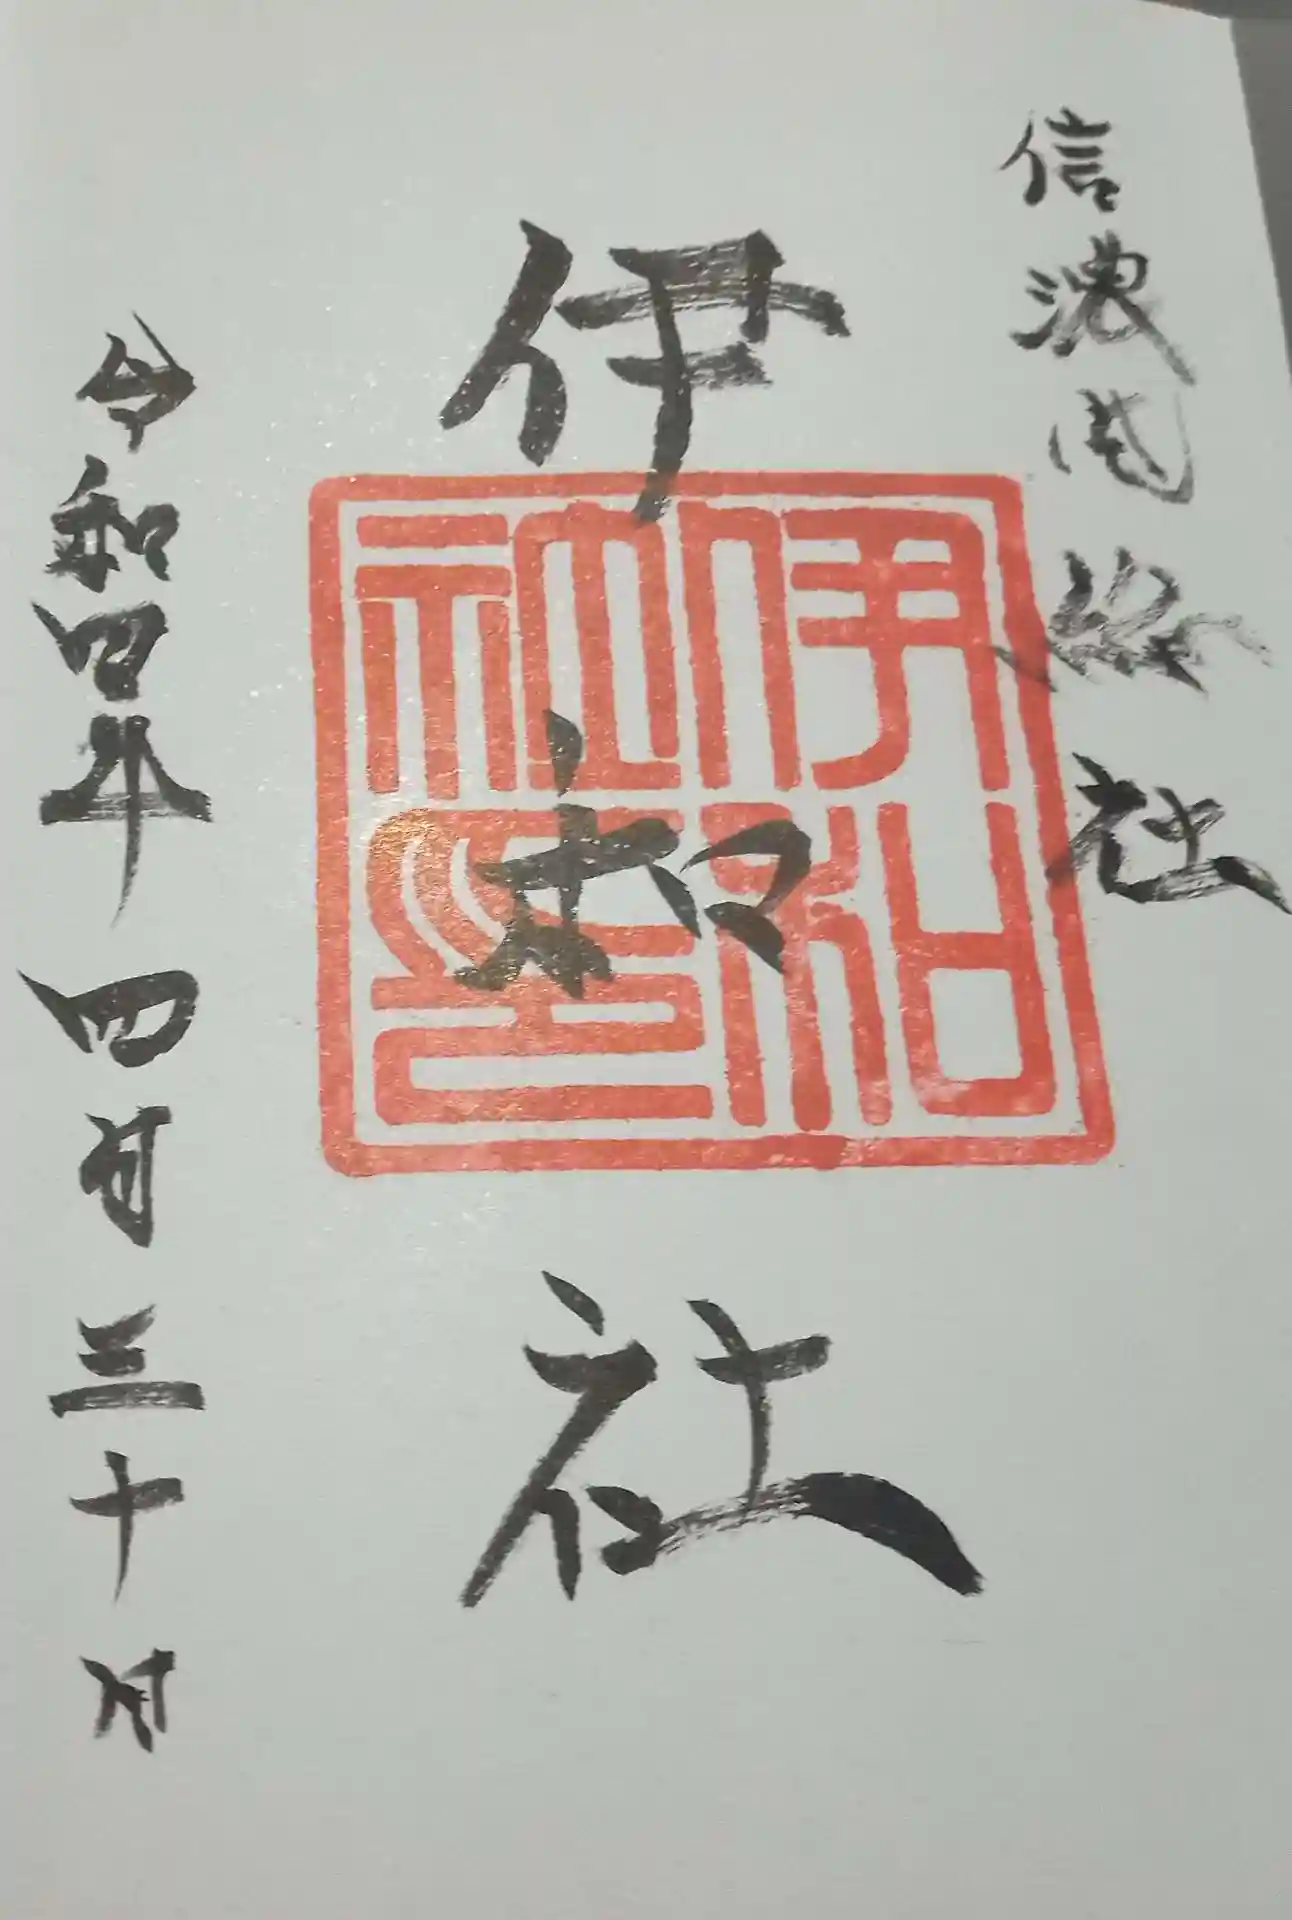 信濃国総社
伊和社
伊和
社印
令和四年四月三十日